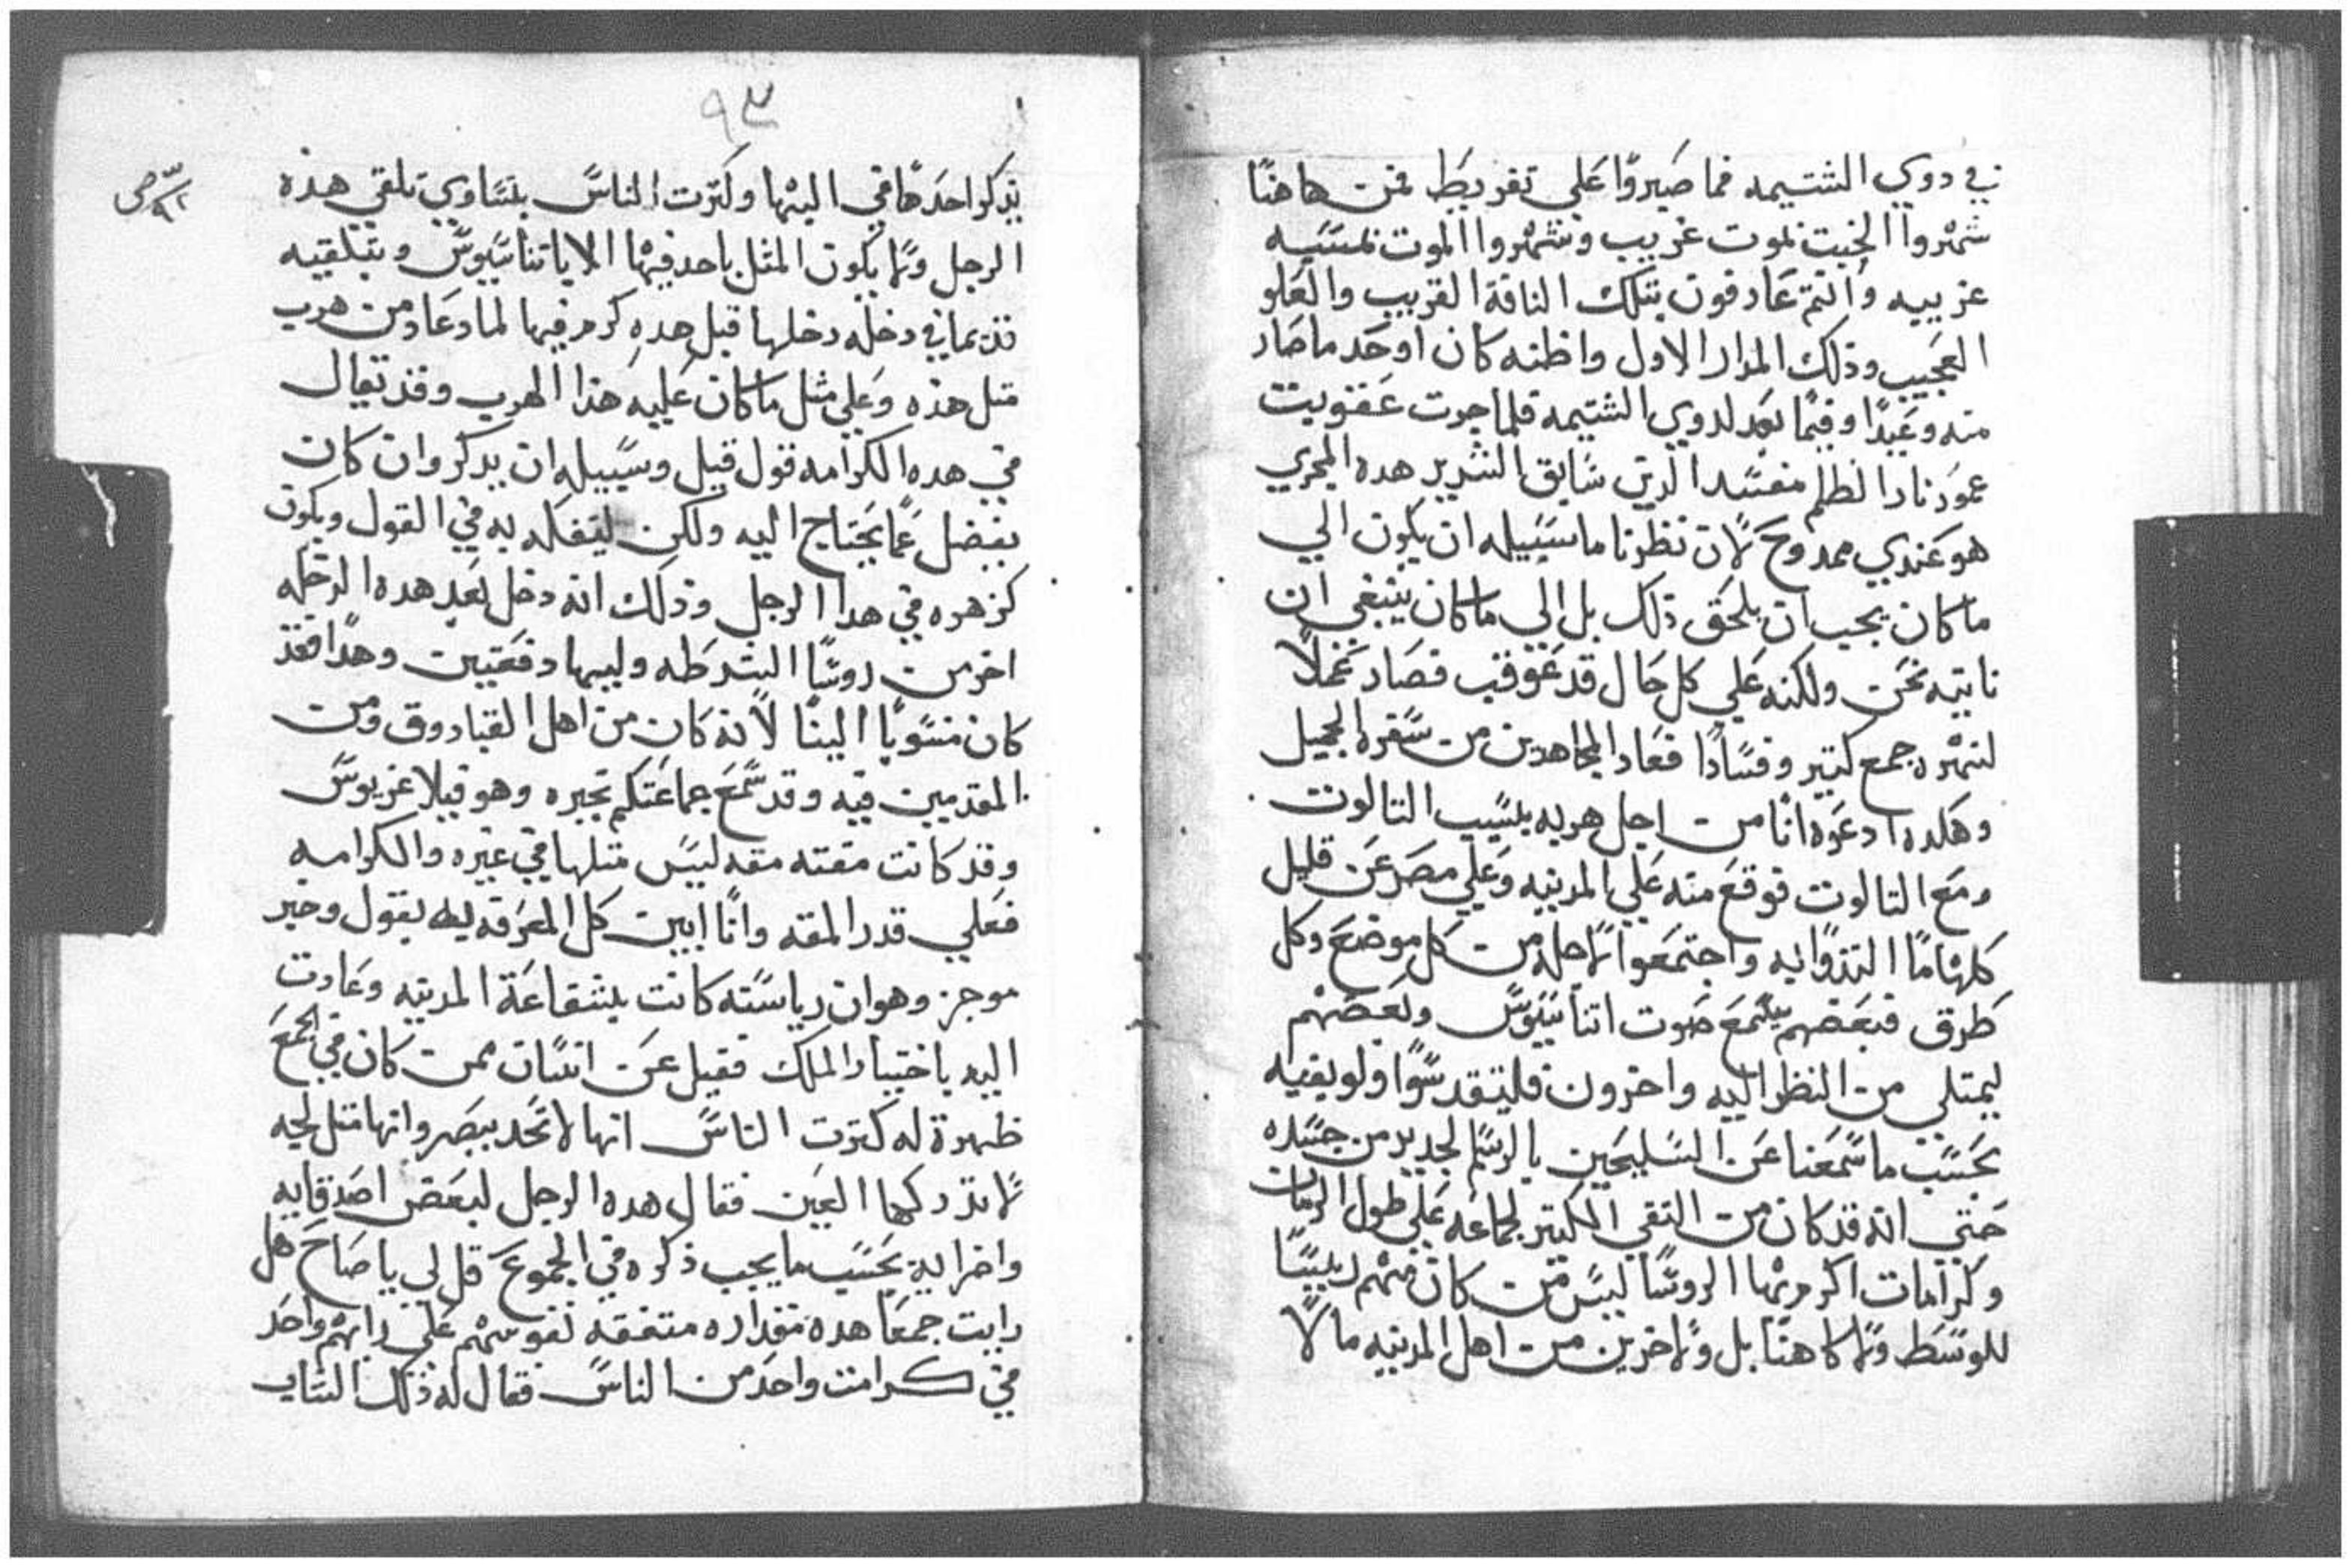 في دوي الشتيمه فما صيروا على تفريط فمن هاهنا
شمروا الخبت نموت غريب وشمروا الموت نمسيه
غريبيه وانتم عارفون بتلك الناقة القريب والعلو
العجيب وذلك المدار الاول واظنه كان اوحد ما صار
منه وعيدا وفيما بعد لدوي الشتيمه فلما جرت عقوبت
عمود نار الظلم مفسد الدين سابق الشرير هده المجري
هو عندي ممدوح لان نظرنا ما سبيله ان يكون الي
ما كان يجب ان يلحق ذلك بل الى ما كان ينبغي ان
ناتيه نحن ولكنه علي كل حال قد عوقب فصار نحلا
لنمره جمع كتير وفسادا فعاد المجاهدين من سفره الجميل
وهكدا ادعوه انا من اجل هربه بسبب التالوت
ومع التالوت فوقع منه علي المدينه وعلي مصر عن قليل
كلها ما التذوا به واجتمعوا لاجله من كل موضع وكل
طرق فبعضهم يسمع صوت اتناسيوس وبعضهم
ليمتلي من النظر اليه واخرون فليتقدسوا ولو بفيه
بحسب ما سمعنا عن السليحين بالرسم الجديد من جسده
حتي انه قد كان من التقي الكتير لجماعه علي طول الزمان
وكرامات اكرم بها الروسا ليس من كان منهم رييسا
للوسط ولا كاهنا بل ولاخرين من اهل المدينه ما لا
٩٣
يدكر احدها في اليها ولكترت الناس بتساوي تلقي هده
الرجل ولا يكون المثل باحد فيها الا باتناسيوس وبتلقيه
قديما في دخله دخلها قبل هده كرم فيها لما دعاد من هرب
متل هذه وعلي مثل ما كان عليه هذا الهرب وقد تقال
في هده الكرامه قول قيل وسبيله ان يدكر وان كان
بفضل عما يحتاج اليه ولكن ليتفكه به في القول ويكون
كزهره في هدا الرجل وذلك انه دخل بعد هده الدخله
اخر من روسا الشرطه واليها دفعتين وهدا فقد
كان منسوبا الينا لانه كان من اهل القبادوق ومن
المقدمين فيه وقد سمع جماعتكم بخبره وهو فيلاغريوس
وقد كانت مقته مقه ليس متلها في غيره والكرامه
فعلي قدر المقه وانا ابين كل المعرفه ليه بقول وخبر
موجز وهو ان رياسته كانت بشفاعة المدينه وعادت
اليه باختيار الملك فقيل عن انسان ممن كان في الجمع
ظهرة له كترت الناس انها لا تحد ببصر وانها متل لجه
لا تدركها العين فقال هده الرجل لبعض اصدقايه
واخرا به بحسب ما يجب ذكره في الجموع قل لي يا صاح هل
رايت جمعا هده مقداره متفقه نفوسهم علي راهم واحد
في كرامت واحد من الناس فقال له ذلك الشاب